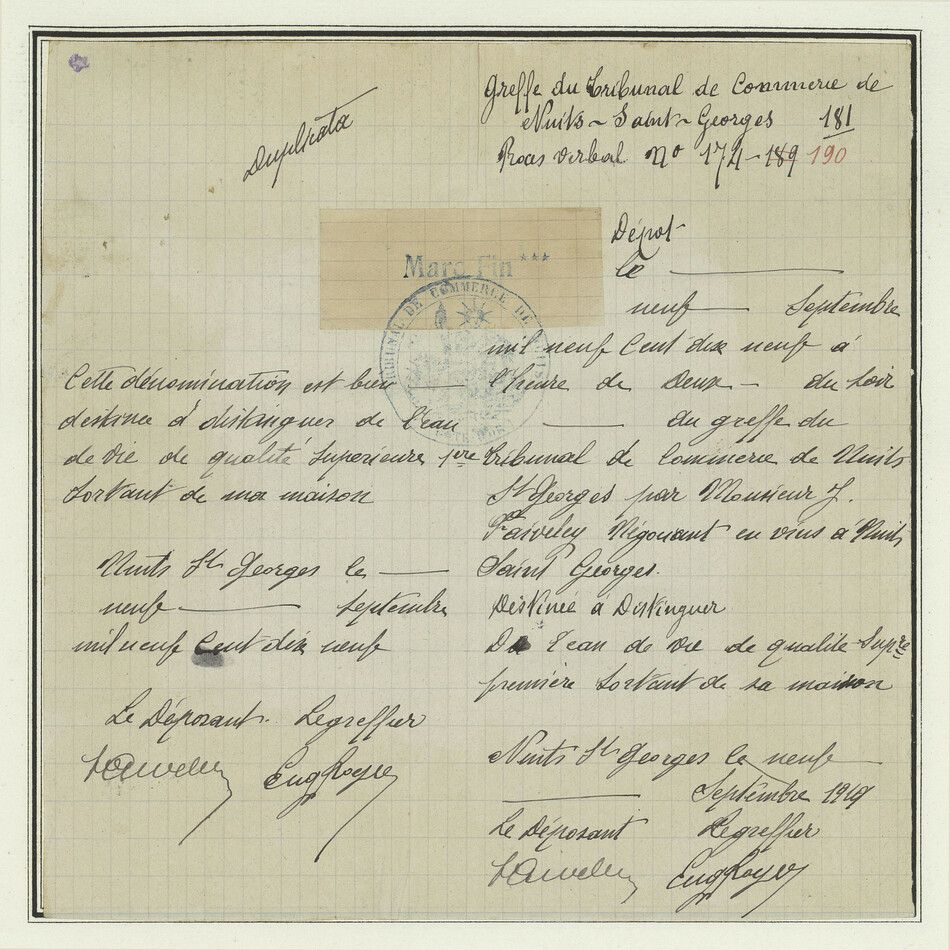 Duplicata
Greffe du Tribunal de Commerce de
Nuits-Saint-Georges 181
Proces verbal No 174-189 190
Marc Fin ***
TRIBUNAL DE COMMERCE DE NUITS
CÔTE D'OR
Cette dénomination est bien
destinée à distinguer de l'eau
de vie de qualité Supérieure 1ère
Sortant de ma maison
Nuits St Georges le
neuf septembre
mil neuf Cent dix neuf
Le Déposant. Le greffier
Dépot
le
neuf Septembre
mil neuf Cent dix neuf à
l'heure de Deux - du soir
du greffe du
Tribunal de Commerce de Nuits
St Georges par Monsieur J.
Faiveley Négociant en vins à Nuits
Saint Georges.
Destinée à Distinguer
De l'eau de vie de qualité Supre
première Sortant de sa maison
Nuits St Georges le neuf
Septembre 1919
Le Déposant Le greffier